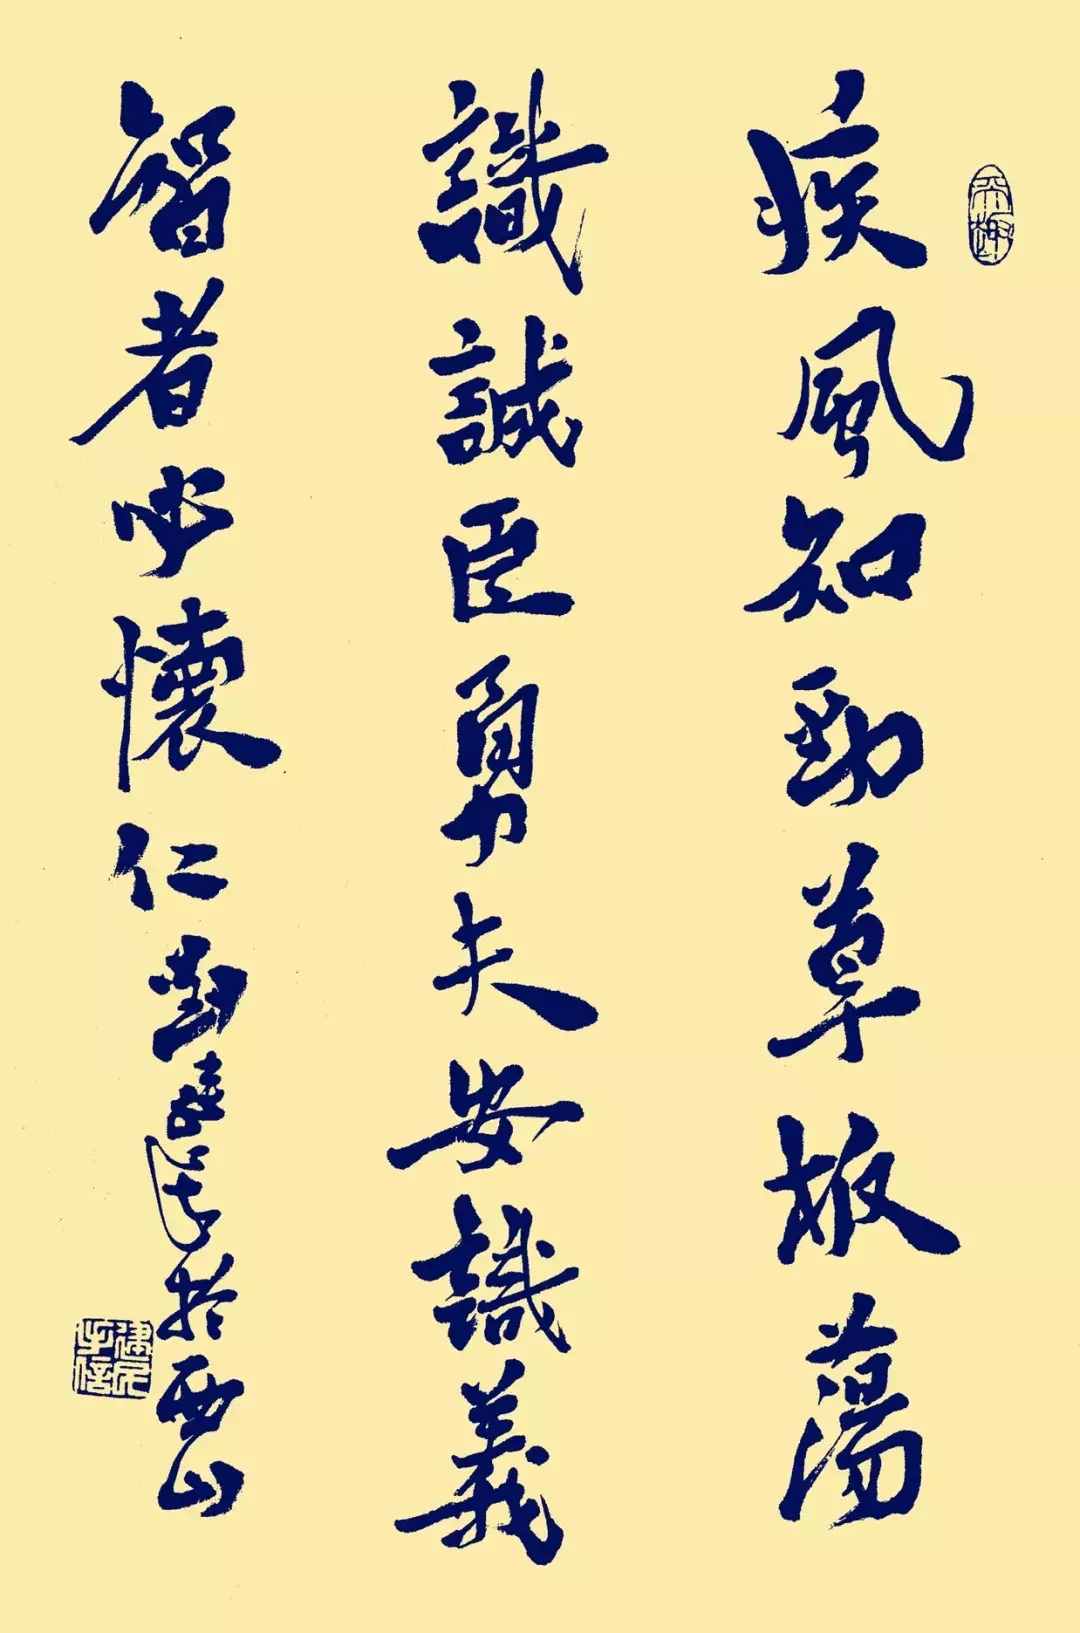 天趣
疾風知勁草板蕩
識誠臣勇夫安識義
智者必懷仁 於西山